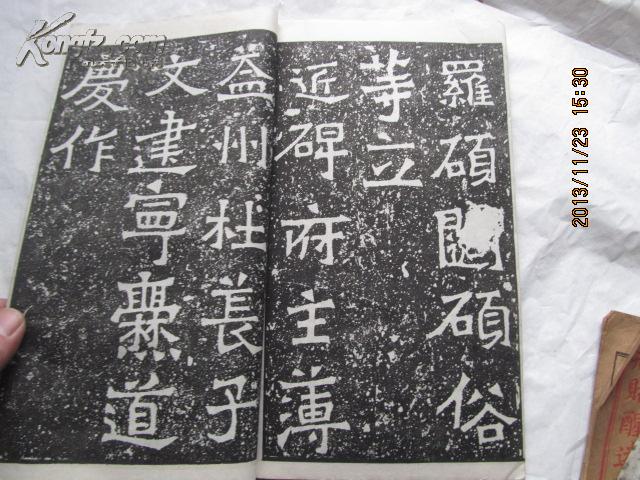 羅碩碩俗
等立
近碑府主薄
益州杜萇子
文建寧爨道
慶作
2013/11/23 15:30
Kongfz.com